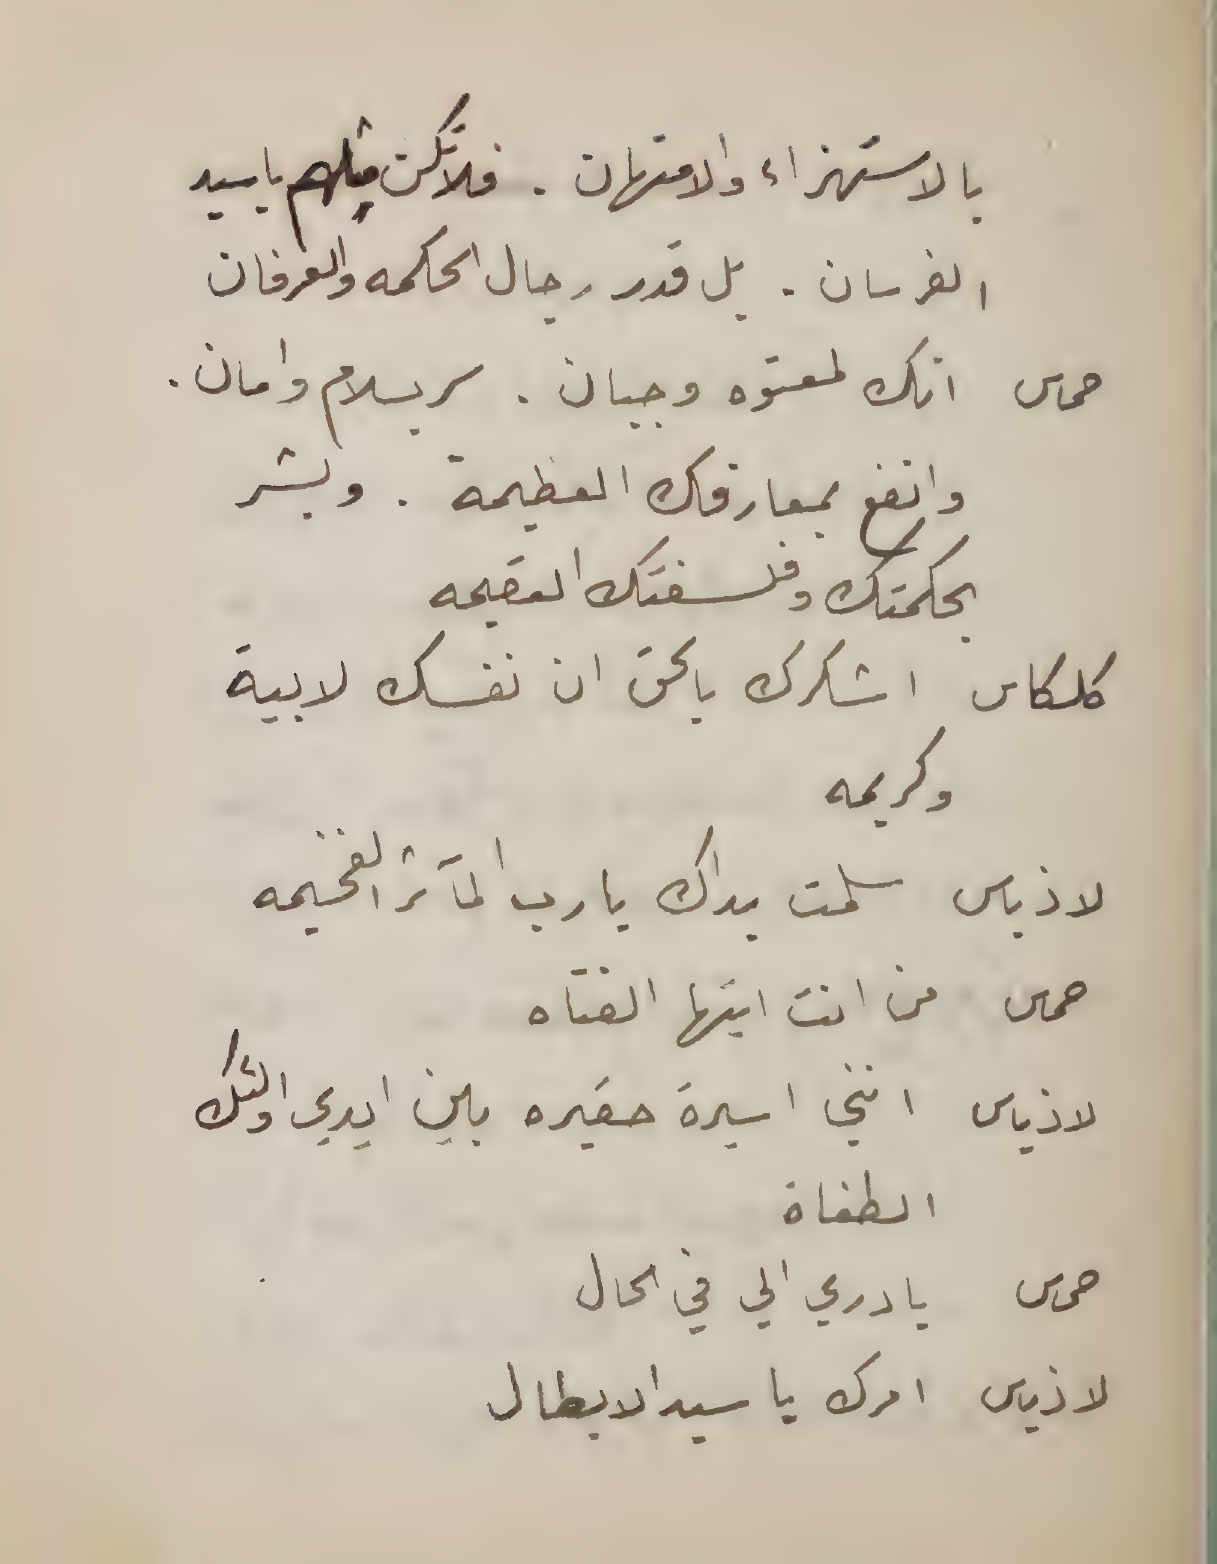 بالاستهزاء والامتهان . فلا تكن مثلهم يا سيد
الفرسان . بل قدر رجال الحكمه والعرفان
حمس انك لمعتوه وجبان . سر بسلام وامان .
وانفع بمعارفك العظيمة . وبشر
بحكمتك وفلسفتك العقيمه
كلكاس اشكرك بالحق ان نفسك لابية
وكريمه
لاذياس سلمت يداك يا رب المآثر الفخيمه
حمس من انت ايتها الفتاه
لاذياس انني اسيرة حقيره بين ايدي اولئك
الطغاة
حمس بادري الي في الحال
لاذياس امرك يا سيد الابطال